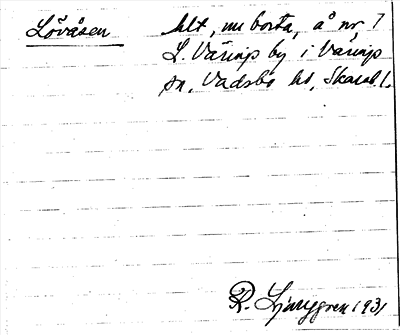 Lövåsen hlt, nu borta, å nr 7
L. Väring by i Värings
sn, Vadsbo hd, Skarab.l.
R. Ljunggren 1931